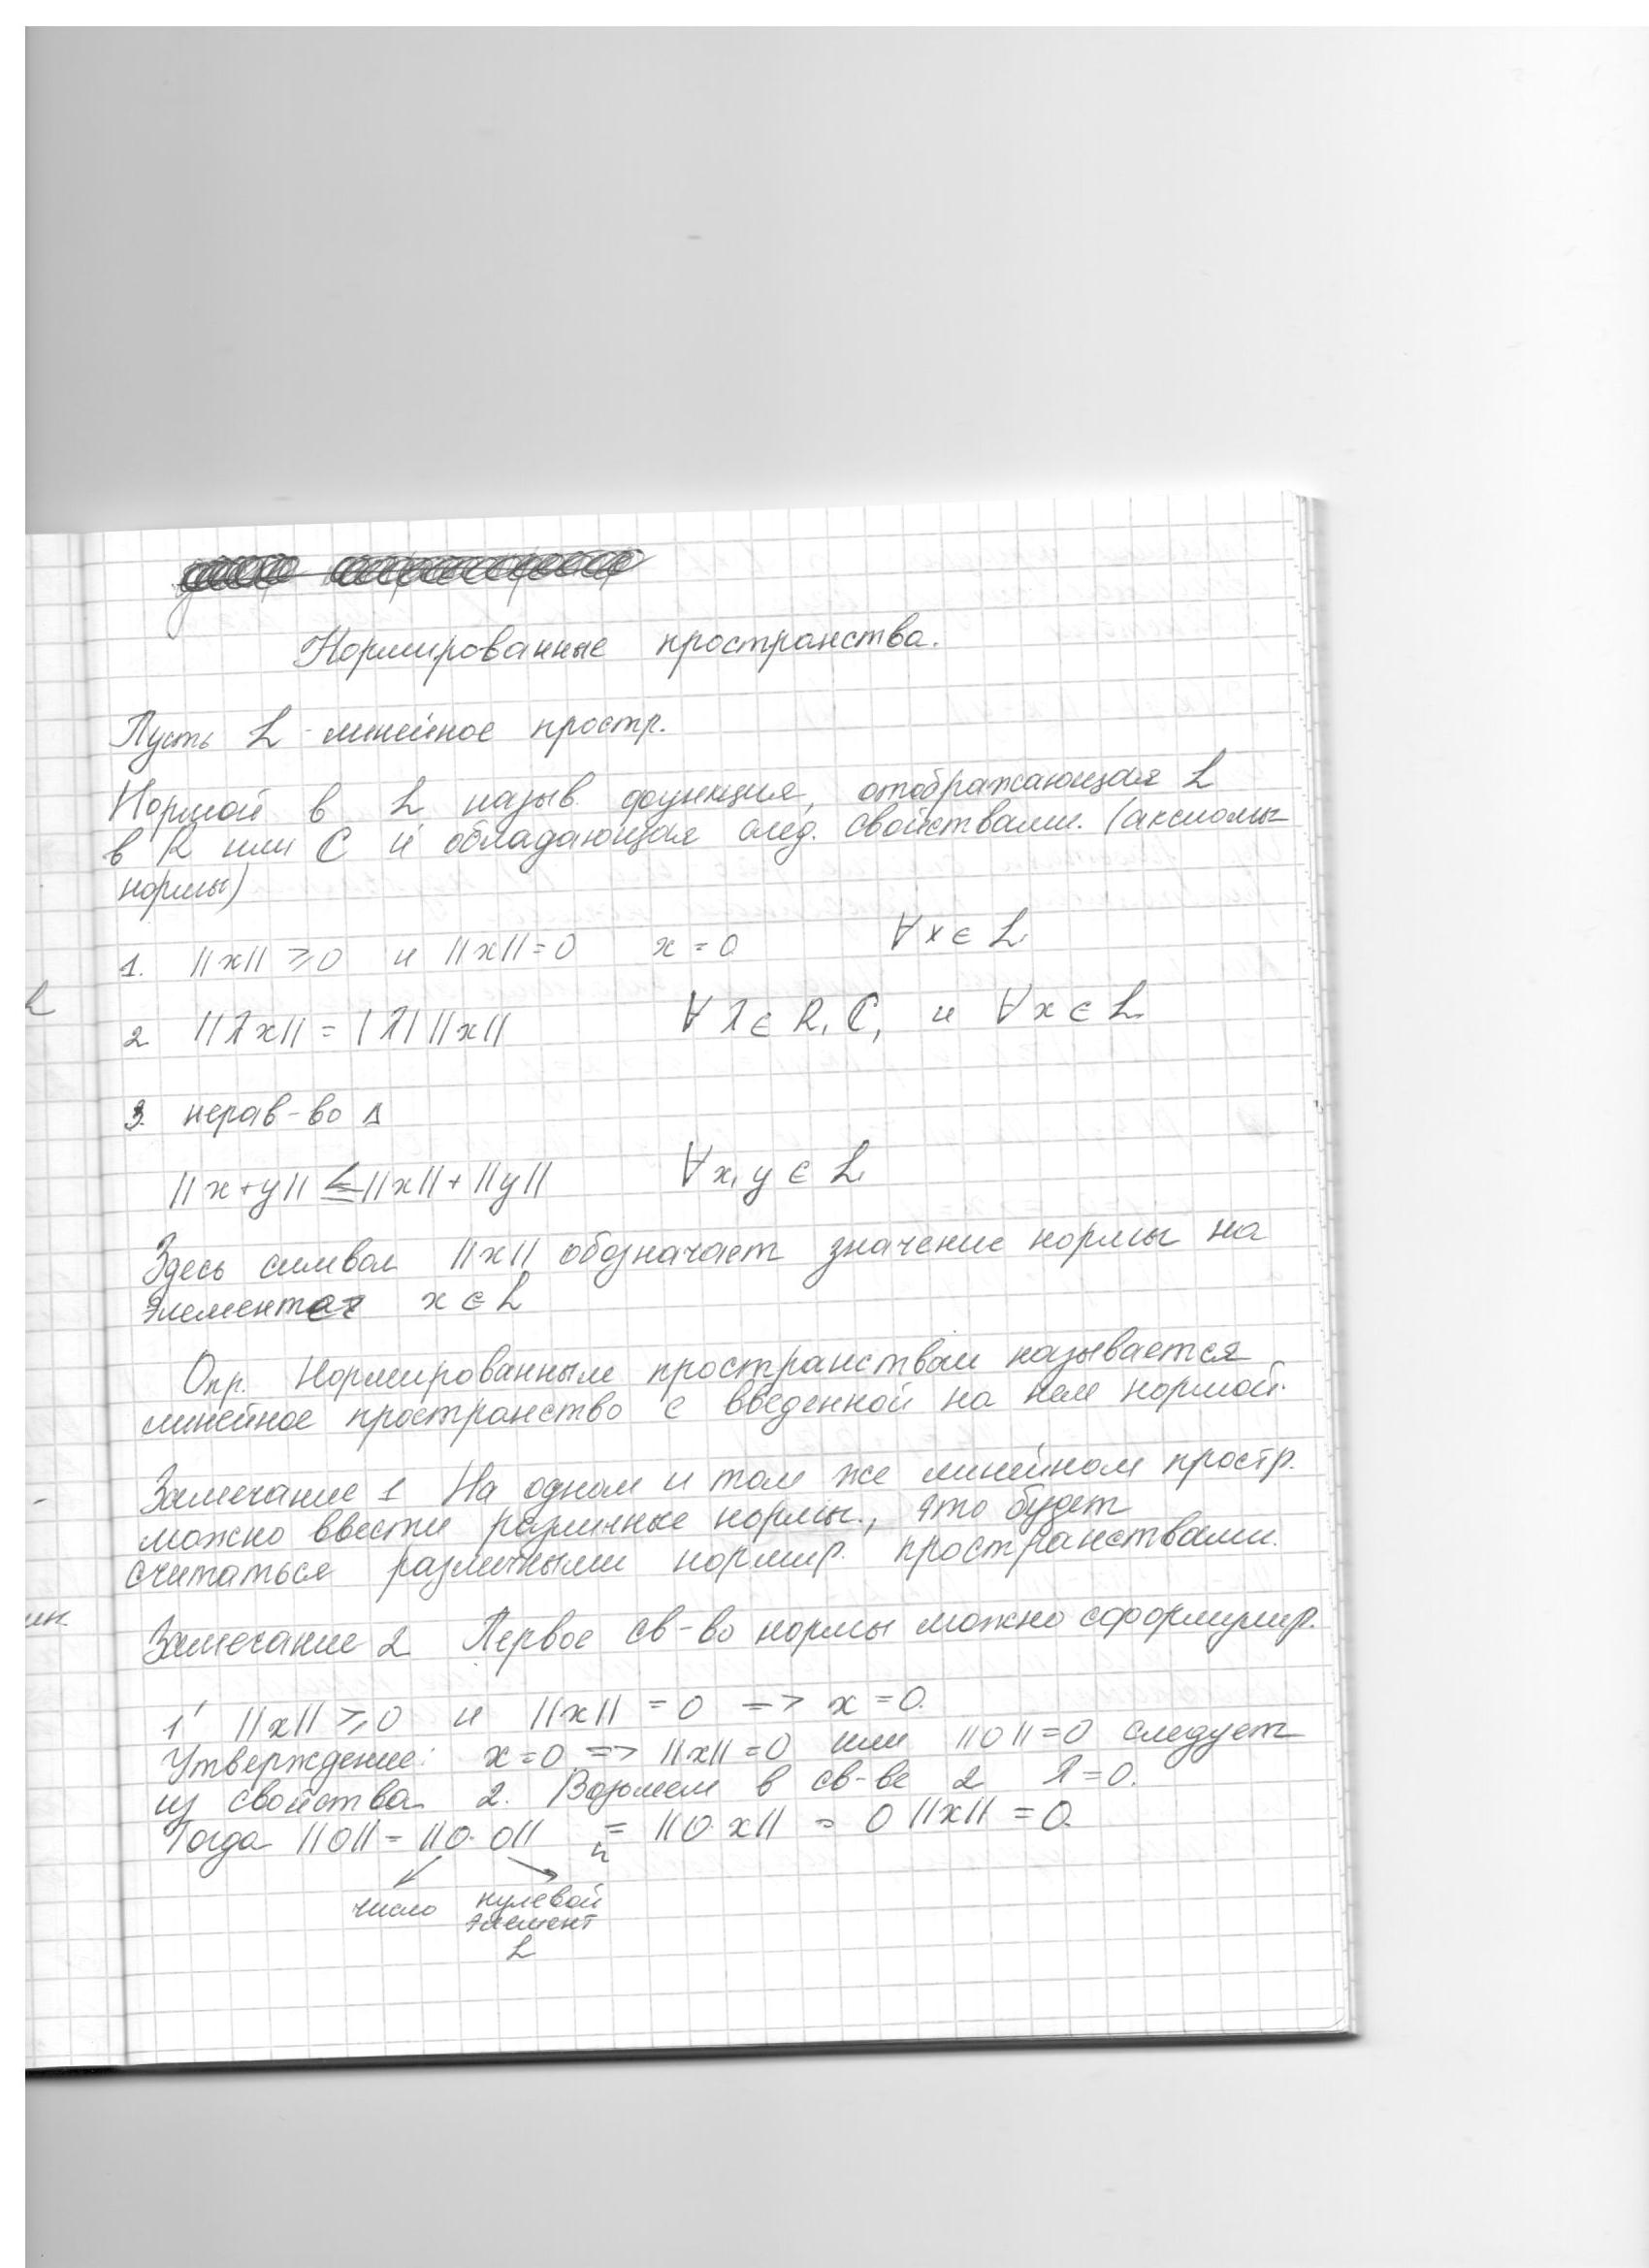 Нормированные пространства.
Пусть L - линейное простр.
Нормой в L назыв. функция, отображающая L
в R или C и обладающая след. свойствами. (аксиомы
нормы)
1. ||x|| ⩾ 0 и ||x|| = 0 x = 0 ∀x ∈ L
2. ||λx|| = |λ| ||x|| ∀λ ∈ R, C, и ∀x ∈ L
3. нерав-во Δ
||x+y|| ≤ ||x|| + ||y|| ∀x, y ∈ L
Здесь символ ||x|| обозначает значение нормы на
x ∈ L
Опр. Нормированным пространствам называется
линейное пространство с введенной на нем нормой.
Замечание 1 На одном и том же линейном простр.
можно ввести различные нормы., это будет
считаться различными нормир. пространствами.
Замечание 2 Первое св-во нормы можно сформулир.
1' ||x|| ⩾ 0 и ||x|| = 0 => x = 0.
Утверждение: x = 0 => ||x|| = 0 или ||0|| = 0 следует
из свойства 2. Возьмем в св-ве 2 λ = 0.
Тогда ||0|| = ||0·0|| = ||0·x|| = 0 ||x|| = 0.
число нулевой
элемент
L